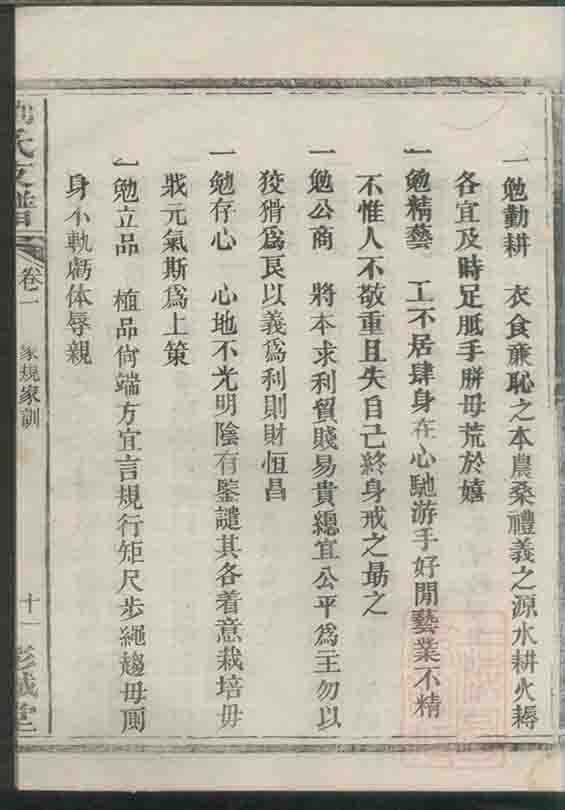 一勉勤耕　衣食廉恥之本農桑禮義之源水耕火耨
各宜及時足胝手胼毋荒於嬉
一勉精藝　工不居肆身在心馳游手好閒藝業不精
不惟人不敬重且失自己終身戒之勗之
一勉公商　將本求利貿賤易貴總宜公平爲主勿以
狡猾爲良以義爲利則財恒昌
一勉存心　心地不光明陰有鑒譴其各着意栽培毋
戕元氣斯爲上策
一勉立品　植品尙端方宜言規行矩尺步繩趨毋
身不軌虧体辱親
氏支譜
卷一
家規家訓
十一
彭城堂